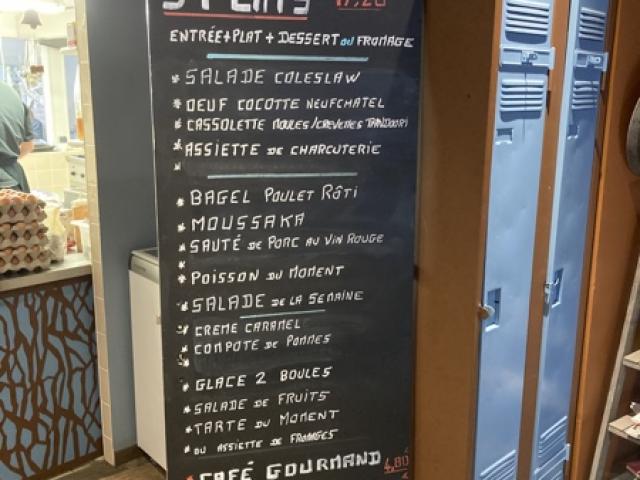 3 PLATS 17,20
ENTRÉE+PLAT+DESSERT OU FROMAGE
* SALADE COLESLAW
* OEUF COCOTTE NEUFCHATEL
* CASSOLETTE MOULES/CREVETTES TANDOORI
* ASSIETTE DE CHARCUTERIE
*
* BAGEL POULET RÔTI
* MOUSSAKA
* SAUTÉ DE PORC AU VIN ROUGE
*
* POISSON DU MOMENT
* SALADE DE LA SEMAINE
* CREME CARAMEL
* COMPOTE DE POMMES
*
* GLACE 2 BOULES
* SALADE DE FRUITS
* TARTE DU MOMENT
* OU ASSIETTE DE FROMAGES
* CAFÉ GOURMAND 4,80